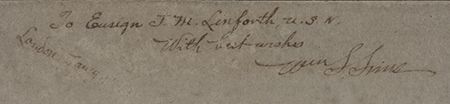 To Ensign F. M. Linforth U.S.N.
With best wishes
Wm S Sims
London